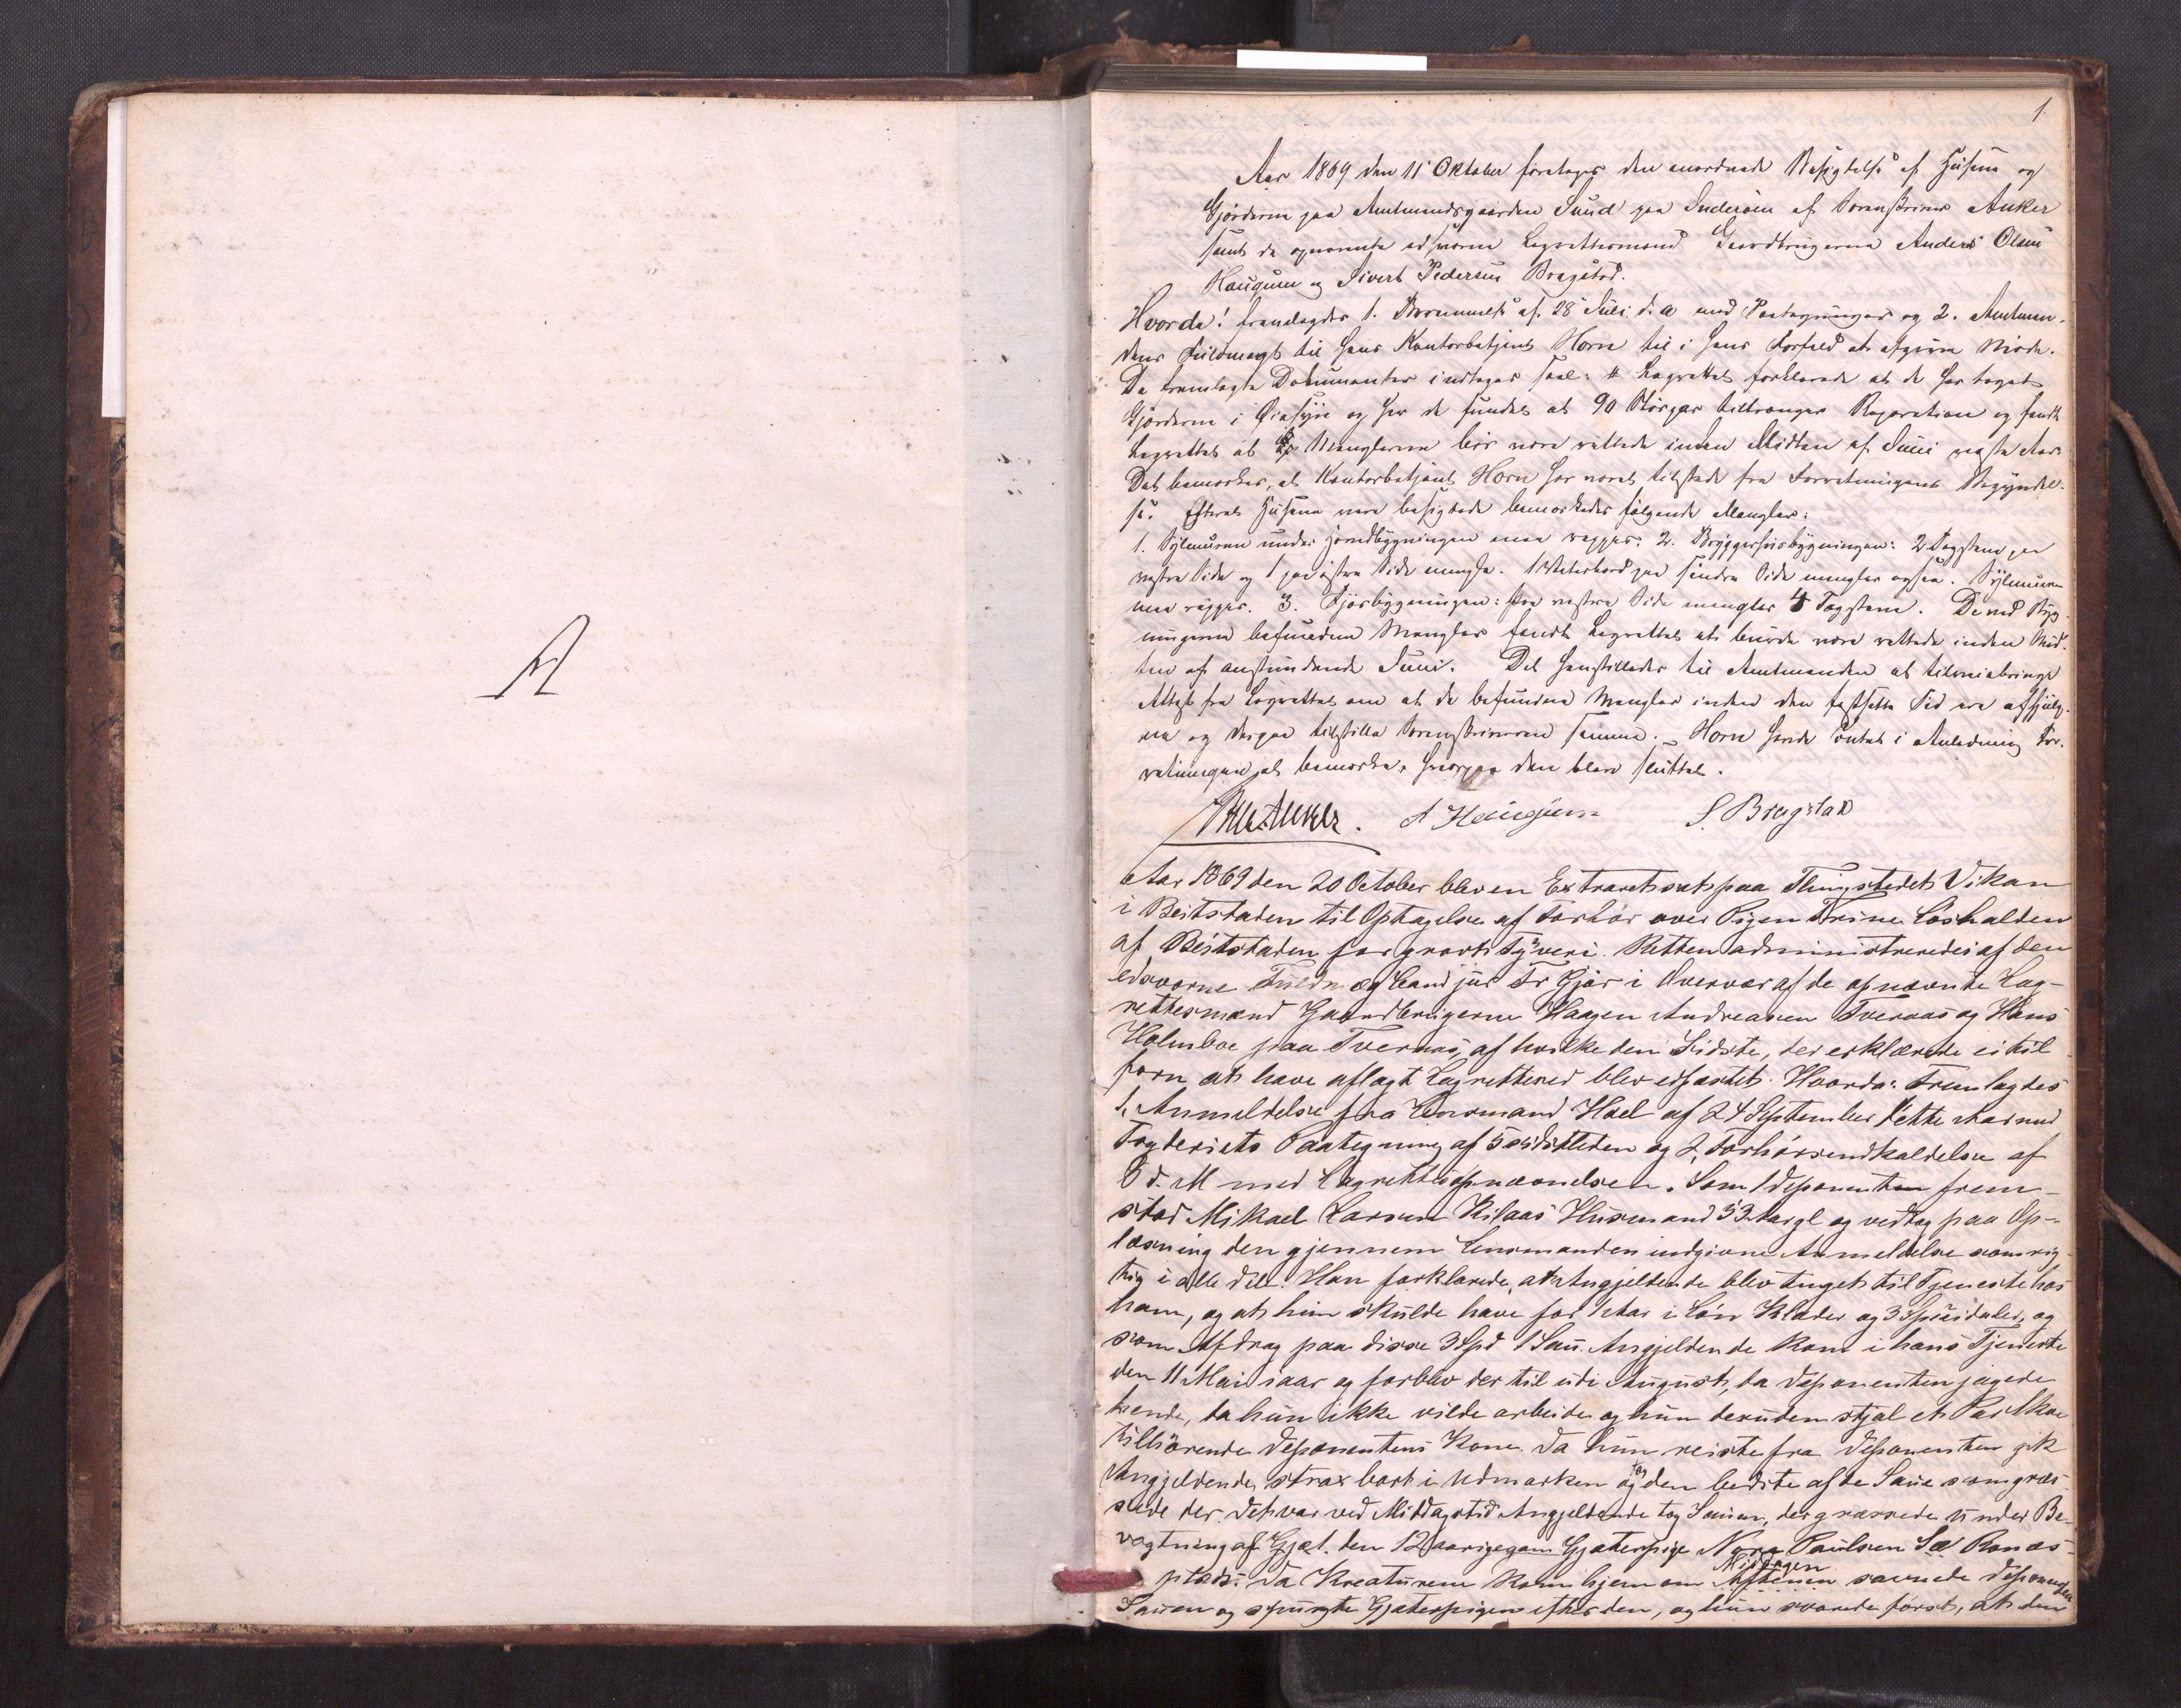 A
1.
Aar 1869 den 11 Oktober foretoges den anordnede Besigtelse af Husene og
Gjærderne paa Amtmandsgaarden Sund paa Inderöen af Sorenskriver Anker
samt de opnævnte edsvorne Lagrettemænd Gaardbrugerne Anders Olsen
Haugum og Sivert Pedersen Bragstad.
Hvorda! fremlagdes 1. Berammelse af 28 Juli d. A med Paategninger og 2. Amtman-
dens Fuldmagt til hans Kontorbetjent Horn til i hans Forfald at afgive Møde.
De fremlagte Dokumenter indtages saal: # Lagrettet forklarede at de har taget
Gjærderne i Øiesyn og har de fundet at 90 Störger tiltrænger Reparation og fandt
Lagrettet at Manglerne bör være rettede inden Midten af Juni næste Aar
Det bemærkes, at Kontorbetjent Horn har været tilstede fra Forretningens Begyndel-
se. Efterat Husene vare besigtede bemærkedes fölgende Mangler:
1. Sylmuren under Hovedbygningen maa rappes: 2. Bryggerhusbygningen: 2 Tagstene paa
vestre Side og 1 paa östre Side mangle. 1 Waterbord paa söndre Side mangler ogsaa. Sylmuren
maa rappes. 3. Fjösbygningen: paa vestre Side mangler 4 Tagstene. De ved Byg-
ningerne befundne Mangler fandt Lagrettet at burde være rettede inden Mid-
ten af anstundende Juni. Det henstilledes til Amtmanden at tilveiebringe
Attest fra Lagrettet om at de befundne Mangler inden den fastsatte Tid ere afhjulp-
ne og derpaa tilstille Sorenskriveren samme. Horn havde Intet i Anledning For-
retningen at bemærke, hvorpaa den blev sluttet.
Anker. A Haugum S. Bragstad
Aar 1869 den 20 October blev en Extraret sat paa Thingstedet Vikan
i Beitstaden til Optagelse af Forhör over Pigen Trine Löshalden
af Beitstaden for grovt Tyveri. Retten administreredes af den
edsvorne Fuldmægt Cand jur Fr Gjör i Overvær af de opnævnte Lag-
rettesmænd Gaardbrugerne Haagen Andreasen Tveraas og Hans
Holmboe paa Tveraas, af hvilke den Sidste, der erklærede ei til
forn at have aflagt Lagretteed blev edfæstet. Hvorda: Fremlagdes
1, Anmeldelse fra Lensmand Hoel af 24 September dette Aar med
Fogderiets Paategning af 5 sidstleden og 2, Forhörsindkaldelse af
8 d. M med Lagrettesopnævnelsen. Som 1 Deponenten frem-
stod Mikael Larsen Kilaas Husmand 53 Aar gl og vedtog paa Op-
læsning den gjennem Lensmanden indgivne Anmeldelse som rig-
tig i alle Dele. Han forklarede, at Angjeldende blev tinget til Tjeneste hos
ham, og at hun skulde have for 1 Aar i Lön Klæder og 3 Speсidaler, og
som Afdrag paa disse 3 Spd 1 Sau. Angjeldende kom i hans Tjeneste
den 11 Mai iaar og forblev der til udi August, da Deponenten jagede
hende, da hun ikke vilde arbeide og hun desuden stjal et Par Skoe
tilhörende Deponentens Kone. Da hun reiste fra Deponenten gik
Angjeldende strax bort i Udmarken og tog den bedste af de Saue som græs-
sede der. Det var ved Middagstid Angjeldende tog Sauen, der græssede under Be-
vogtning af Gjæt. den 12 aarige Gjæterpige Nora Paulsen Sæ Ranæs-
plads. Da Kreaturene kom hjem om Aftenen Middagen savnede Deponenten
Sauen og spurgte Gjæterpigen efter den, og hun svarede först, at den